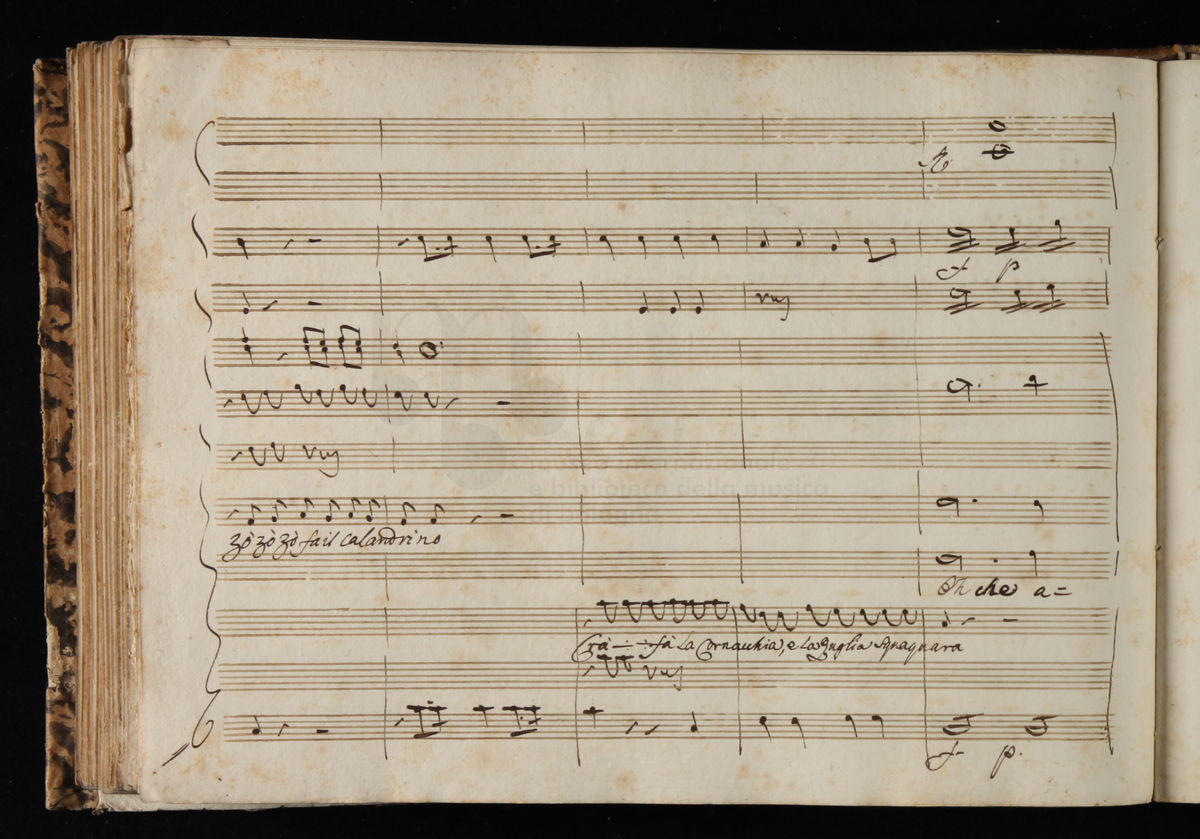 f.
f p
zò zò zò fa il Calandrino
Oh che a=
Crà fà la Cornacchia, e la
f. p.
museo internazionale
e biblioteca della musica
di bologna